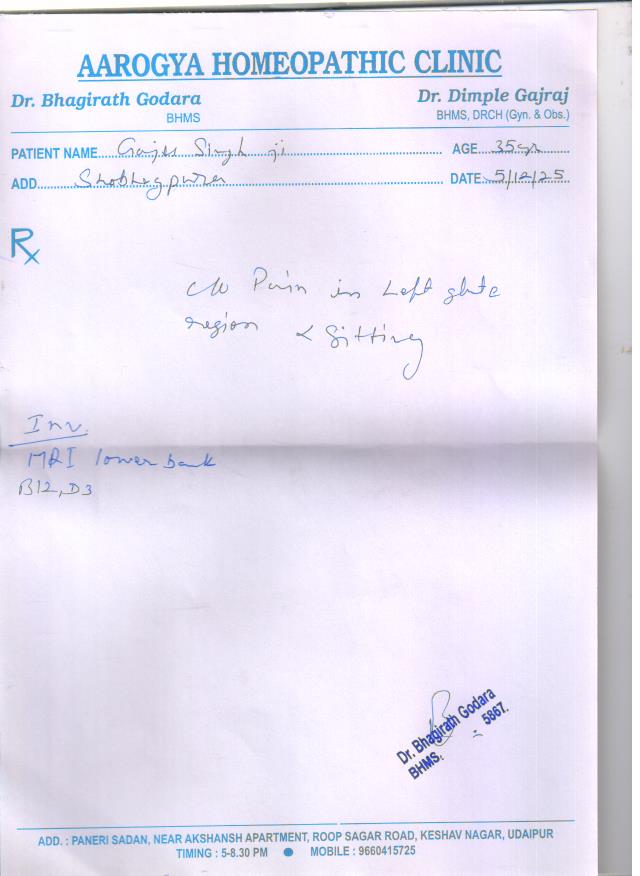 AAROGYA HOMEOPATHIC CLINIC
Dr. Bhagirath Godara
BHMS
Dr. Dimple Gajraj
BHMS, DRCH (Gyn. & Obs.)
PATIENT NAME Singh ji AGE 35yr
ADD Shobhagpura DATE 5/12/25
Rx
c/o Pain in Left glute
region < Sitting
Inv.
MRI lower back
B12, D3
Dr. Bhagirath Godara
BHMS. 5867.
ADD. : PANERI SADAN, NEAR AKSHANSH APARTMENT, ROOP SAGAR ROAD, KESHAV NAGAR, UDAIPUR
TIMING : 5-8.30 PM ● MOBILE : 9660415725